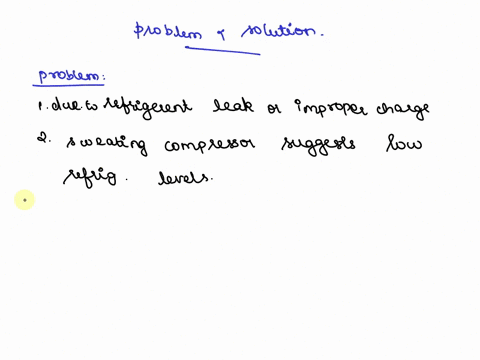 problem & solution.
problem:
1. due to refrigerent leak or improper charge
2. sweating compressor suggests low
refrig. levels.